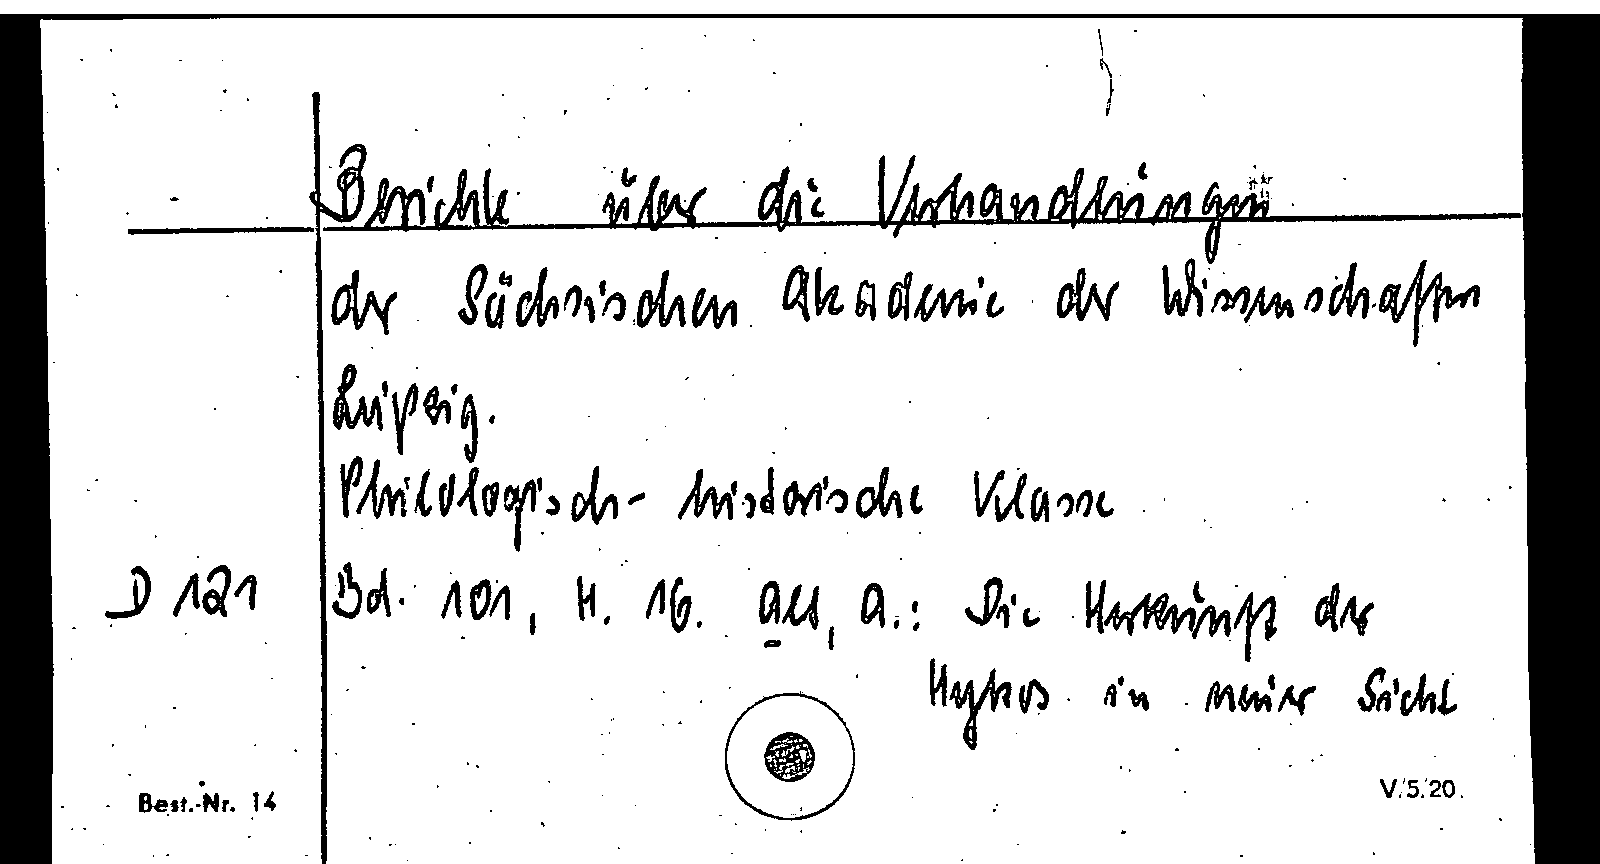 Berichte über die Verhandlungen
der Sächsischen Akademie der Wissenschaften
Leipzig.
Philologisch-historische Klasse
D 121 Bd. 101, H. 16. Alt, A.: Die Herkunft der
Hykos in neuer Sicht
Best.-Nr. 14 V.5.20.